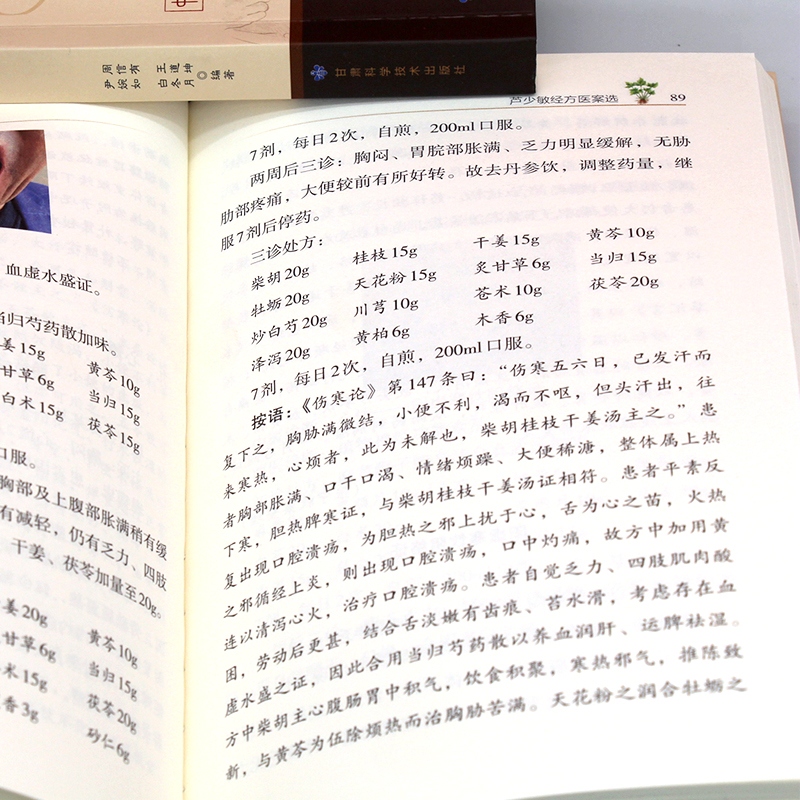 周信有 王道坤
尹婉如 白冬月◎编著
甘肃科学技术出版社
芦少敏经方医案选 89
血虚水盛证。
当归芍药散加味。
姜15g 黄芩10g
甘草6g 当归15g
白术15g 茯苓15g
口服。
胸部及上腹部胀满稍有缓
有减轻，仍有乏力、四肢
干姜、茯苓加量至20g。
姜20g 黄芩10g
甘草6g 当归15g
术15g 茯苓20g
香3g 砂仁6g
7剂，每日2次，自煎，200ml口服。
两周后三诊：胸闷、胃脘部胀满、乏力明显缓解，无胁
肋部疼痛，大便较前有所好转。故去丹参饮，调整药量，继
服7剂后停药。
三诊处方：
柴胡20g 桂枝15g 干姜15g 黄芩10g
牡蛎20g 天花粉15g 炙甘草6g 当归15g
炒白芍20g 川芎10g 苍术10g 茯苓20g
泽泻20g 黄柏6g 木香6g
7剂，每日2次，自煎，200ml口服。
按语：《伤寒论》第147条曰：“伤寒五六日，已发汗而
复下之，胸胁满微结，小便不利，渴而不呕，但头汗出，往
来寒热，心烦者，此为未解也，柴胡桂枝干姜汤主之。”患
者胸部胀满、口干口渴、情绪烦躁、大便稀溏，整体属上热
下寒，胆热脾寒证，与柴胡桂枝干姜汤证相符。患者平素反
复出现口腔溃疡，为胆热之邪上扰于心，舌为心之苗，火热
之邪循经上炎，则出现口腔溃疡，口中灼痛，故方中加用黄
连以清泻心火，治疗口腔溃疡。患者自觉乏力、四肢肌肉酸
困，劳动后更甚，结合舌淡嫩有齿痕、苔水滑，考虑存在血
虚水盛之证，因此合用当归芍药散以养血润肝、运脾祛湿。
方中柴胡主心腹肠胃中积气，饮食积聚，寒热邪气，推陈致
新，与黄芩为伍除烦热而治胸胁苦满。天花粉之润合牡蛎之